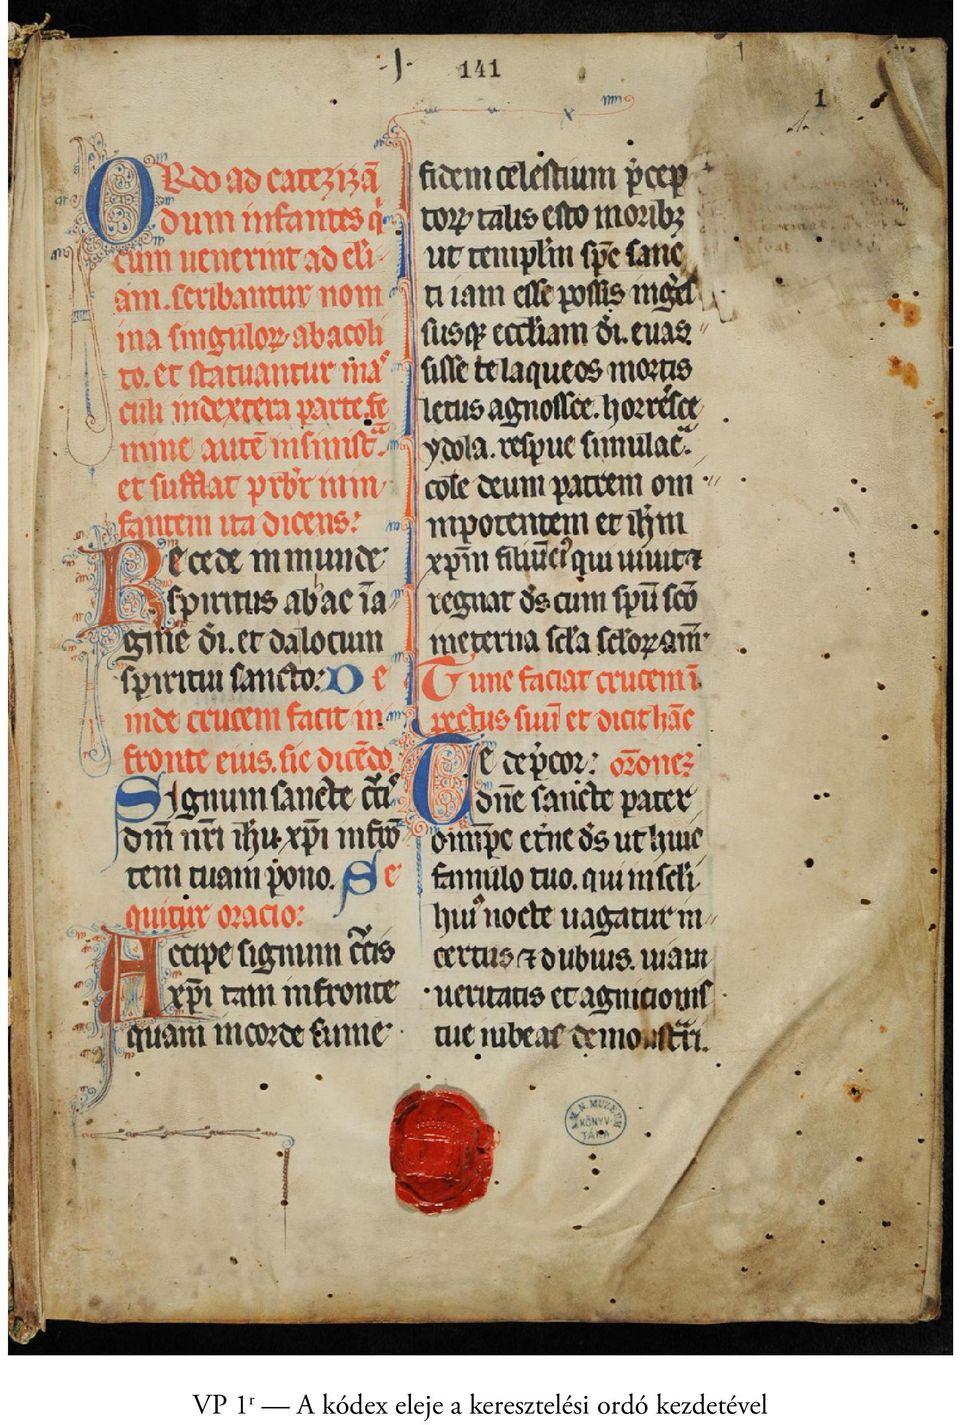 ·J· 141
1
ORdo ad catezizā
dum infantes q̄
cum uenerint ad ecli
am. scribantur nom
ina singuloꝝ ab acoli
to. et statuantur ma
culi in dextera parte. fe
mine autē in sinistᵃ.
et sufflat prbr̄ in in
fantem ita dicens:
Recede inmunde
spiritus ab hac īa
gine dī. et da locum
spiritui sancto: De
inde crucem facit in
fronte eius. sic dicēdo.
Signum sancte cͣci
dn̄i nr̄i ih̄u xp̄i in frō
tem tuam p̄ono. Se
quitur oracio:
Accipe signum cͣcis
xp̄i tam in fronte
quam in corde sume
fidem celestium p̄cep
toꝝ talis esto moribꝫ
ut templm̄ sp̄c sanc
ti iam esse possis ingͤs
susqꝫ eccliam dī. euas
sisse te laqueos mortis
letus agnossce. horresce
ydola. respue simulacᵃ.
cole deum patrem om
nipotentem et ih̄m
xp̄m filiū eiꝰ qui uiuit ⁊
regnat ds̄ cum sp̄u sc̄o
in eterna scl̄a scl̄oꝝ am̄
Tunc faciat crucem ī
pectus suū et dicit hāc
Te dep̄cor: or̄onez
dn̄e sancte pater
om̄pe et̄ne ds̄ ut huic
famulo tuo. qui in secli
huiꝰ nocte uagatur in
certus ⁊ dubius. uiam
ueritatis et agnicionis
tue iubeas demonstᵃri.
M. N. MUZEUM
KÖNYV-
TÁRA
VP 1ʳ — A kódex eleje a keresztelési ordó kezdetével